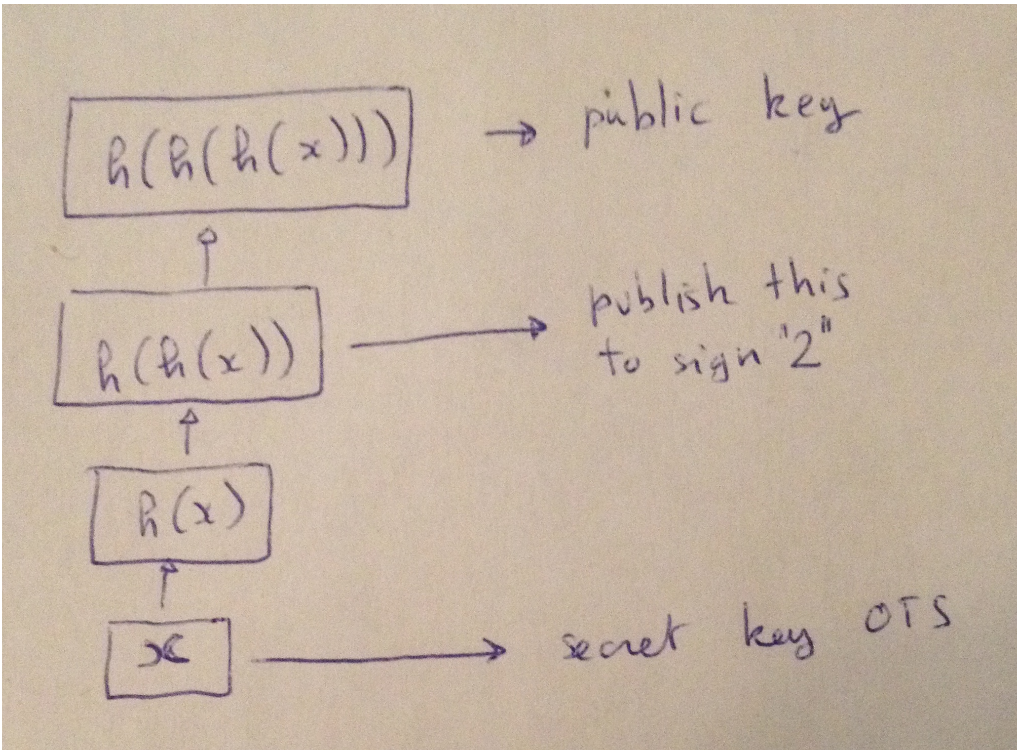 h(h(h(x))) → public key
h(h(x)) → publish this
to sign "2"
h(x)
x → secret key OTS